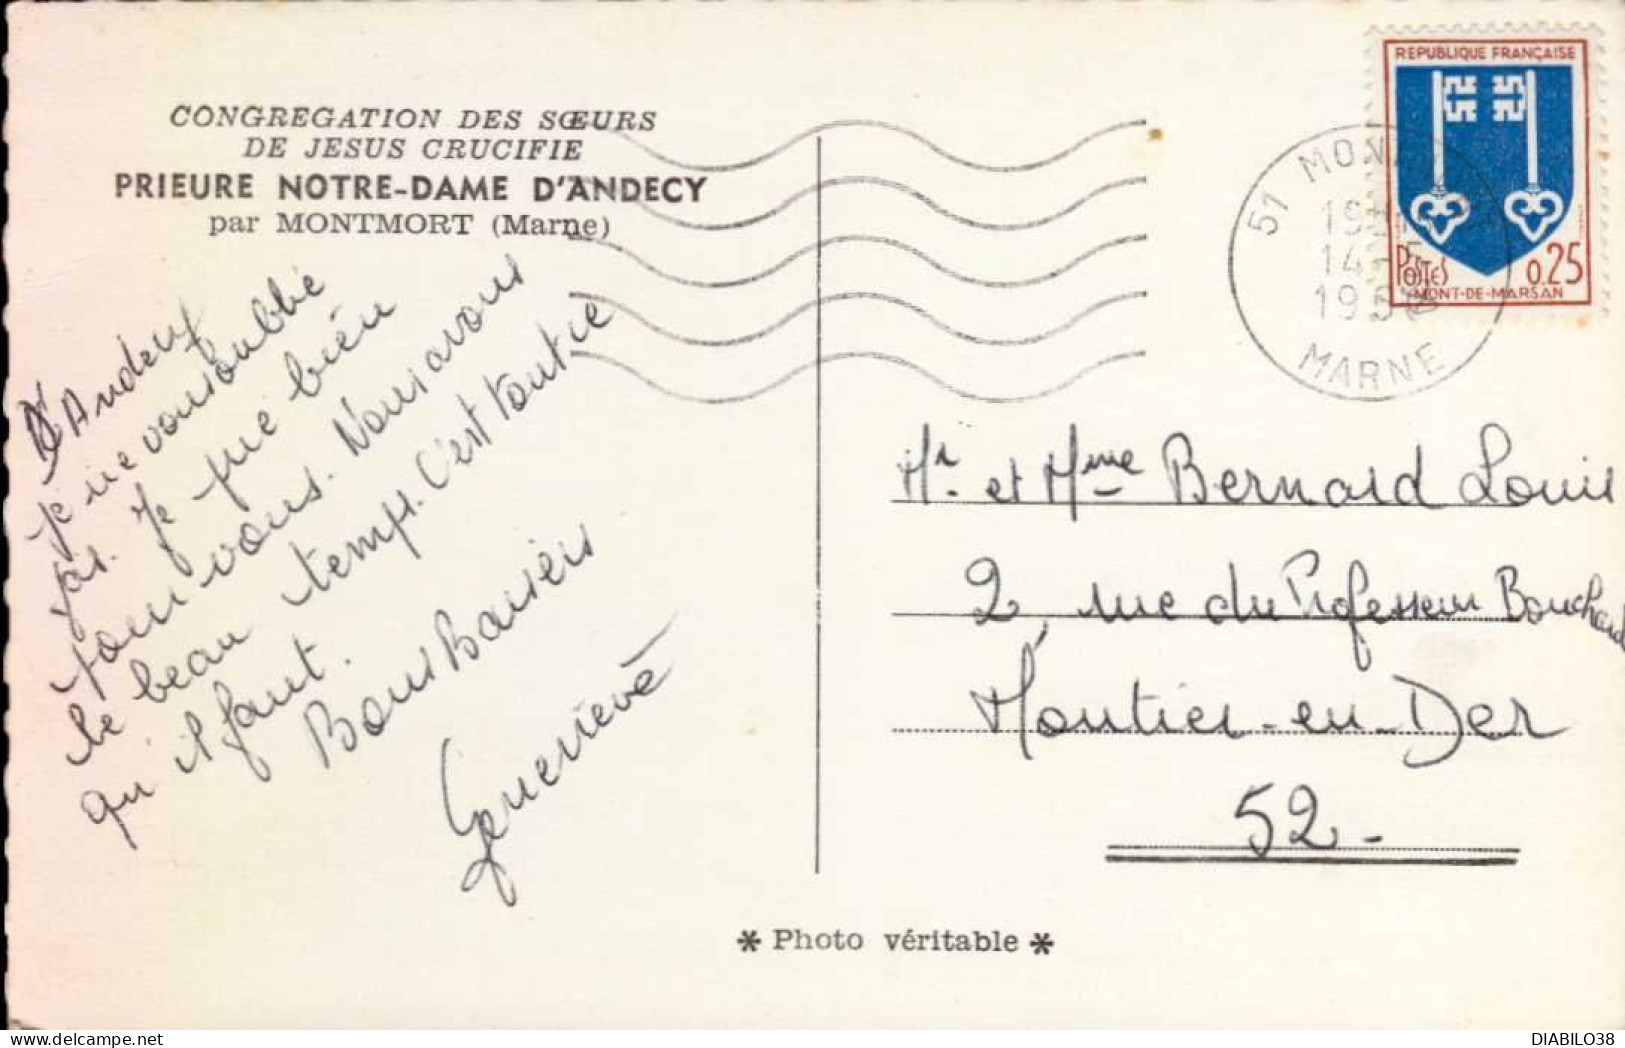 CONGREGATION DES SŒURS
DE JESUS CRUCIFIE
PRIEURE NOTRE-DAME D'ANDECY
par MONTMORT (Marne)
D'Andecy
je ne vous oublie
pas. Je prie bien
pour vous. Nous avons
le beau temps. C'est tout ce
qu'il faut.
Bons Baisers
Geneviève
REPUBLIQUE FRANÇAISE
POSTES 0.25
MONT-DE-MARSAN
51
MARNE
Mr et Mme Bernard Louis
2, rue du Professeur Bouchard
Montier-en-Der
52-
* Photo véritable *
DIABILO38